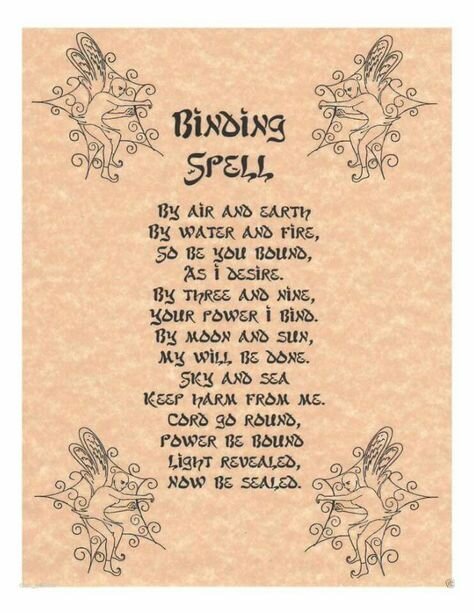 Binding
Spell
By air and earth
By water and fire,
So be you bound,
As i desire.
By three and nine,
Your power i bind.
By moon and sun,
My will be done.
Sky and sea
Keep harm from me.
Cord go round,
Power be bound
Light revealed,
Now be sealed.